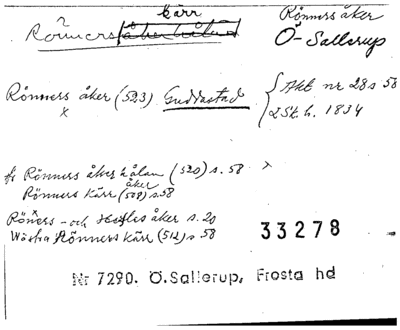 kärr
Rönners åkerhålan
Rönners åker
Ö-Sallerup
Rönners åker (523) Guddastad
{ Akt nr 28 s 58
L Sk. h. 1834
x
Rönners åker hålan (520) s. 58 x
åker
Rönners kärr (508) s. 58
Rönners - och åker s. 20
Wästra Rönners kärr (512) s 58
33278
Nr 7290. Ö.Sallerup, Frosta hd